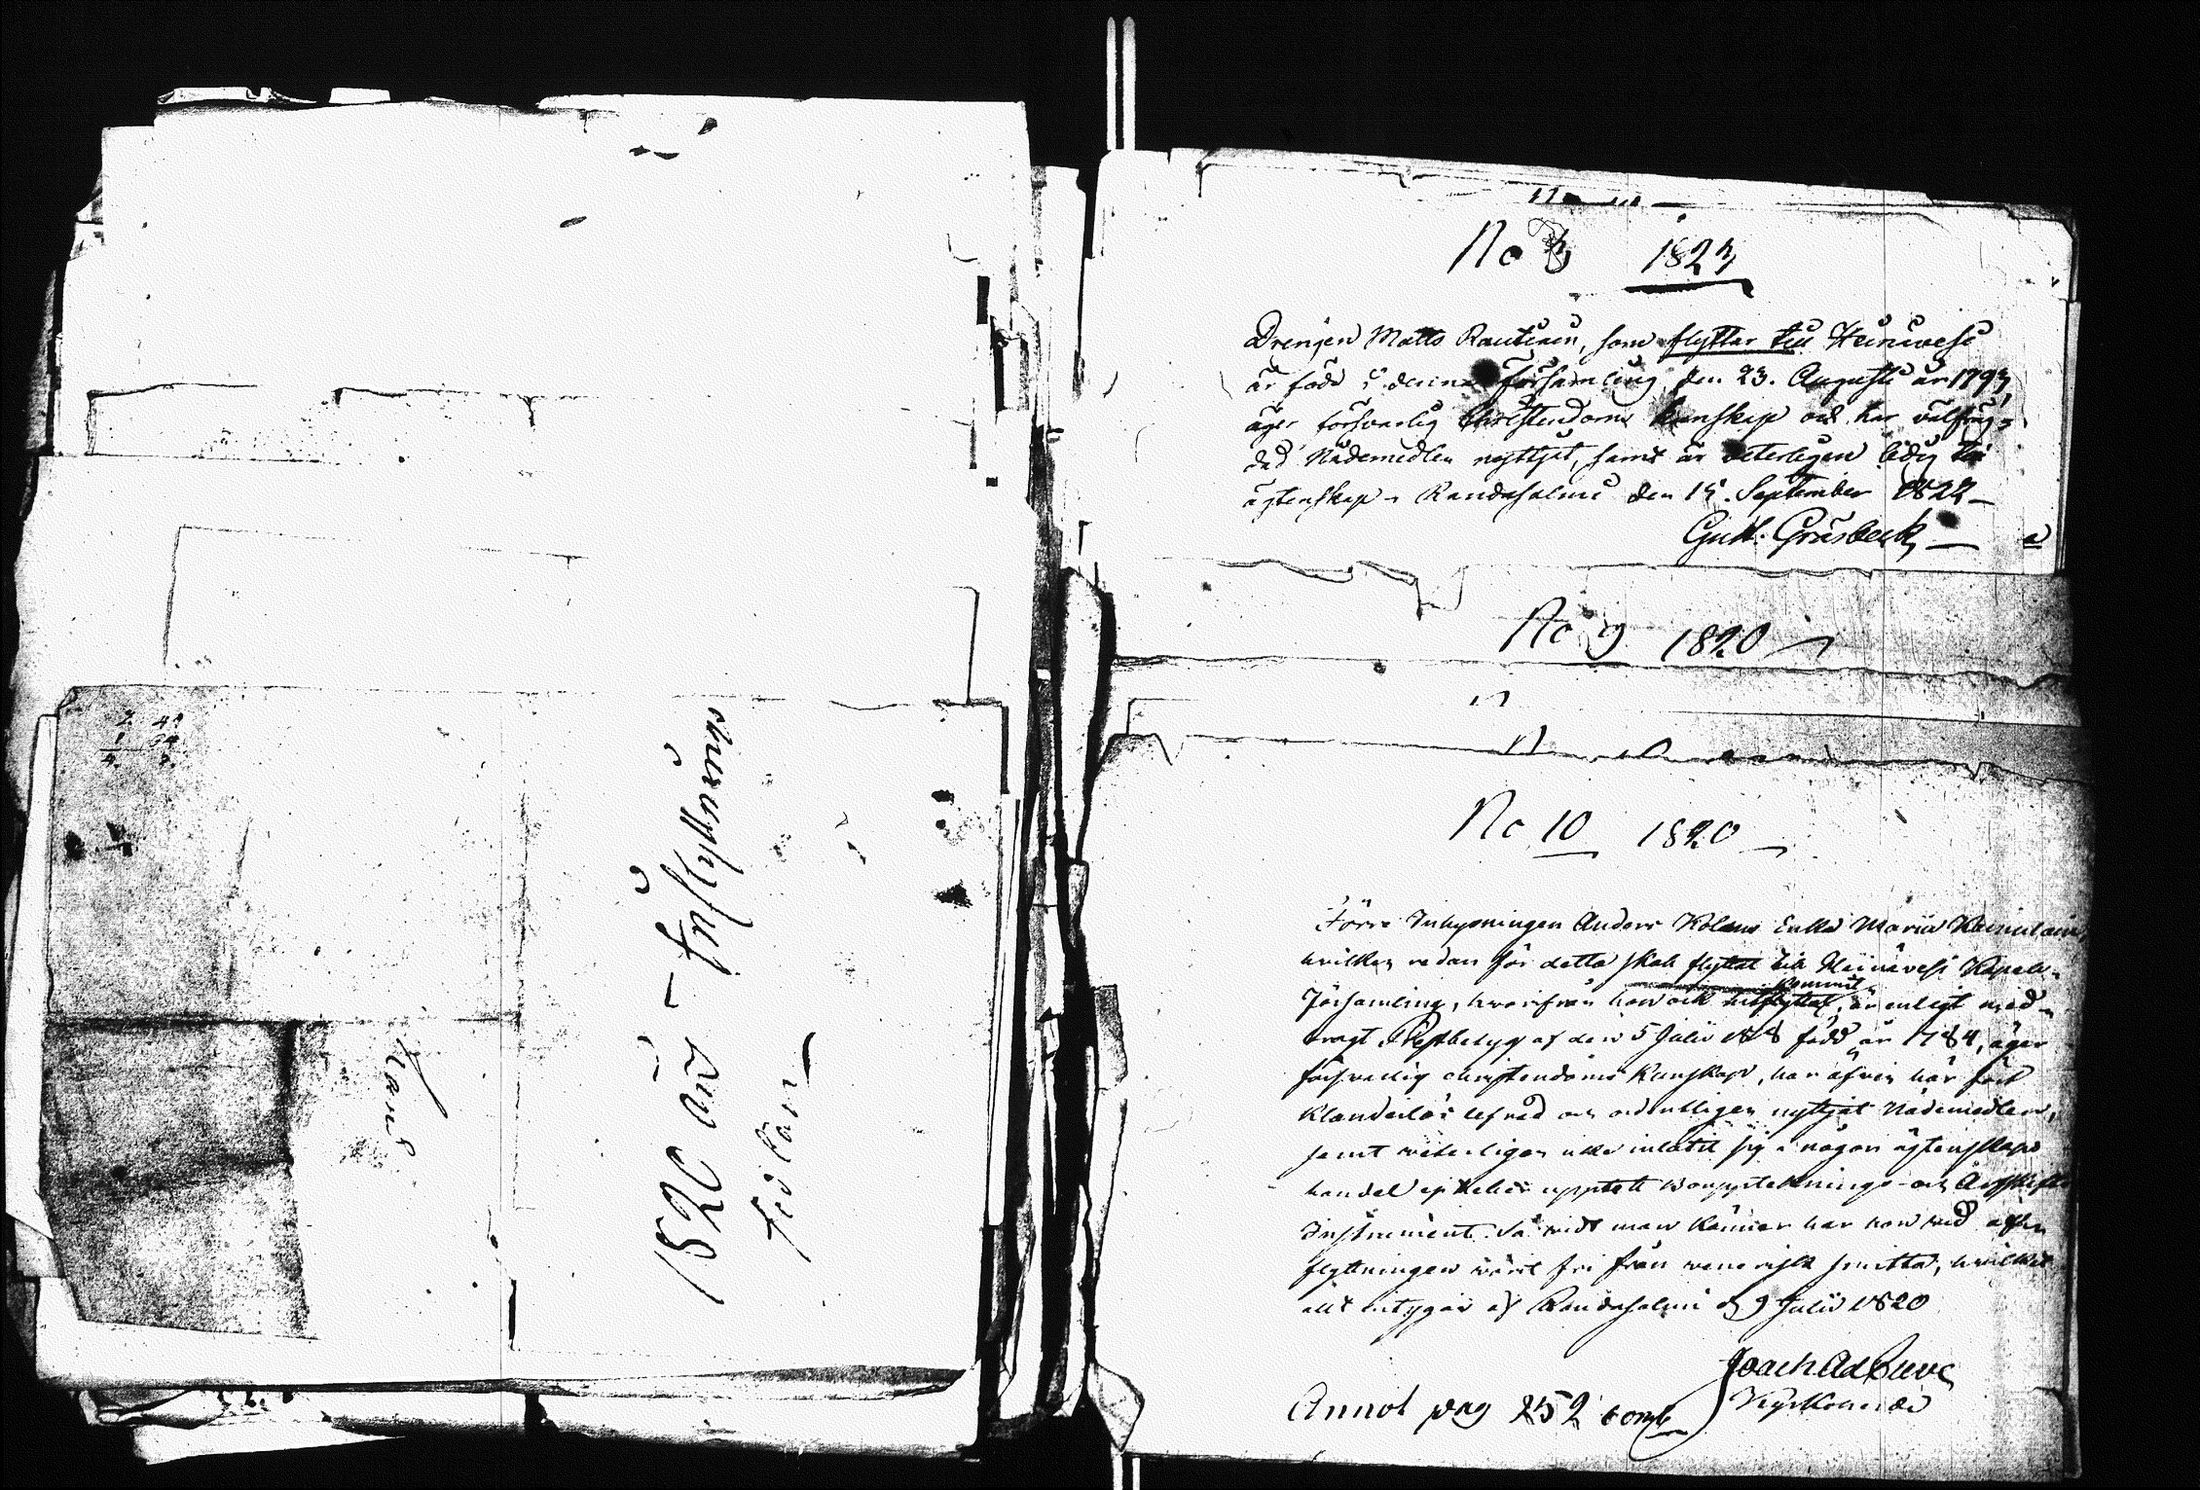 1820 års Inflyttnings
sedlar
No 3 1823
Drengen Matts Rautiain, som flyttar till Heinevesi
är född i denna församling den 23. Augusti år 1793,
äger försvarlig Christendoms kunskap och har välfräg-
dad Nådemedlen nyttjat, samt är veterligen ledig till
ägtenskap. Randasalmi den 15. September 1823
Gust. Gråsbeck
No 9 1820
No 10 1820
Förre Inhysningen Anders Kolanes Enka Maria
hvilken redan för detta skall flyttat till Heinävesi Kapells
kommit
församling, hvarifrån hon ock hitflyttat, är enligt med-
bragt Prestbetyg af den 5 Julii född år 1784, äger
försvarlig christendoms kunskap, har äfven här fört
klanderlös lefnad och ordentligen nyttjat Nådemedlen,
samt veterligen icke inlåtit sig i någon ägtenskaps
handel ej heller upptett Bouppteknings- och Arfskiftes
Instrument. Så vidt man känner har hon vid
flyttningen varit fri från venerisk smitta, hvilket
allt intygar af Randasalmi d. 9 Julii 1820
Joach Ad
Kyrkoherde
Annot pag 252